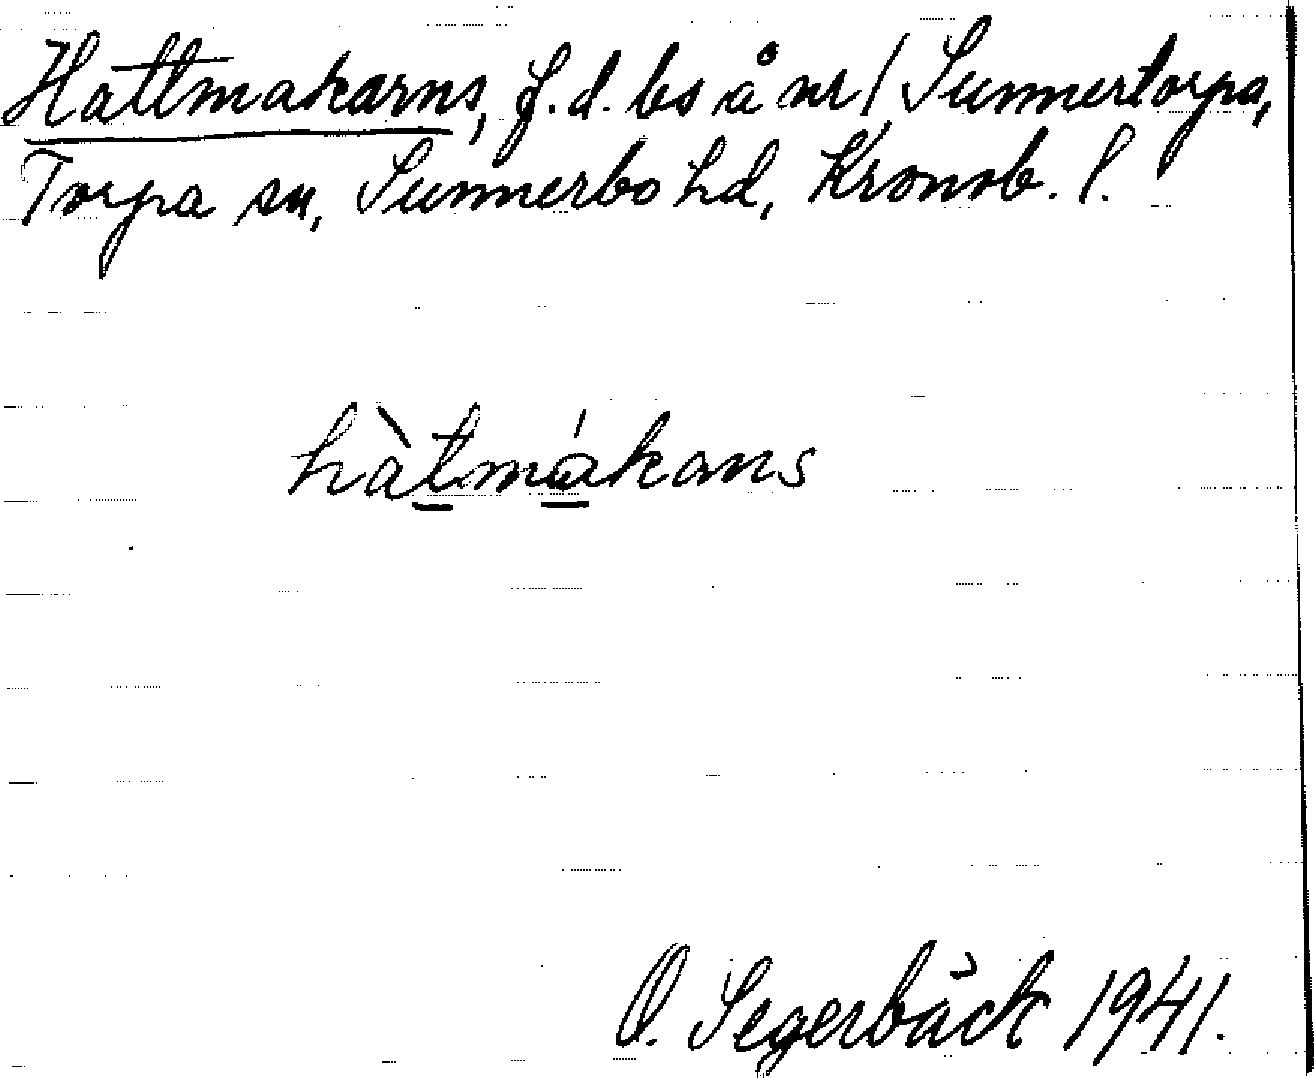 Hattmakarns, f.d. bs å nr 1 Sunnertorpa,
Torpa sn, Sunnerbo hd, Kronob. l.
hàtmákans
O. Segerbäck 1941.